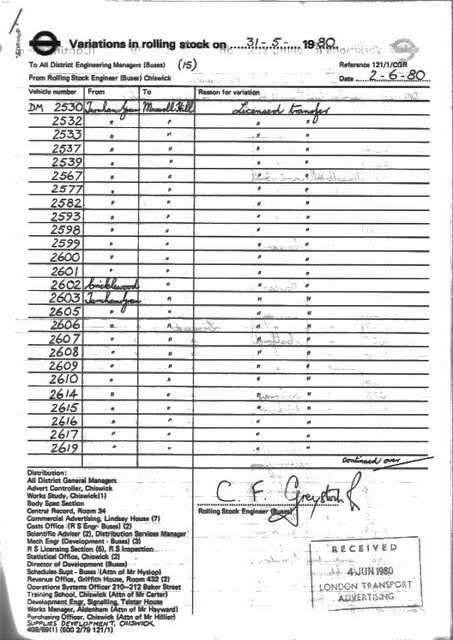 Variations in rolling stock on 31-5- 1980
To All District Engineering Managers (Buses) (15)
Reference 121/1/CGR
From Rolling Stock Engineer (Buses) Chiswick
Date 2-6-80
Vehicle number From To Reason for variation
DM 2530 Turnham Green Muswell Hill Licensed transfer
2532 " " " "
2533 " " " "
2537 " " " "
2539 " " " "
2567 " " " "
2577 " " " "
2582 " " " "
2593 " " " "
2598 " " " "
2599 " " " "
2600 " " " "
2601 " " " "
2602 Cricklewood " " "
2603 Turnham Green " " "
2605 " " " "
2606 " " " "
2607 " " " "
2608 " " " "
2609 " " " "
2610 " " " "
2614 " " " "
2615 " " " "
2616 " " " "
2617 " " " "
2619 " " " "
continued over
Distribution:
All District General Managers
Advert Controller, Chiswick
Works Study, Chiswick(1)
Body Spec Section
Central Record, Room 34
Commercial Advertising, Lindsay House (7)
Costs Office (R S Engr- Buses) (2)
Scientific Adviser (2), Distribution Services Manager
Mech Engr (Development - Buses) (3)
R S Licensing Section (5), R.S Inspection
Statistical Office, Chiswick (2)
Director of Development (Buses)
Schedules Supt - Buses (Attn of Mr Hyslop)
Revenue Office, Griffith House, Room 432 (2)
Operations Systems Officer 210-212 Baker Street
Training School, Chiswick (Attn of Mr Carter)
Development Engr, Signalling, Telstar House
Works Manager, Aldenham (Attn of Mr Hayward)
Purchasing Officer, Chiswick (Attn of Mr Hillier)
SUPPLIES DEVELOPMENT, CHISWICK.
408/89(1) (500 2/79 121/1)
C. F.
Rolling Stock Engineer (Buses)
RECEIVED
4 JUN 1980
LONDON TRANSPORT
ADVERTISING